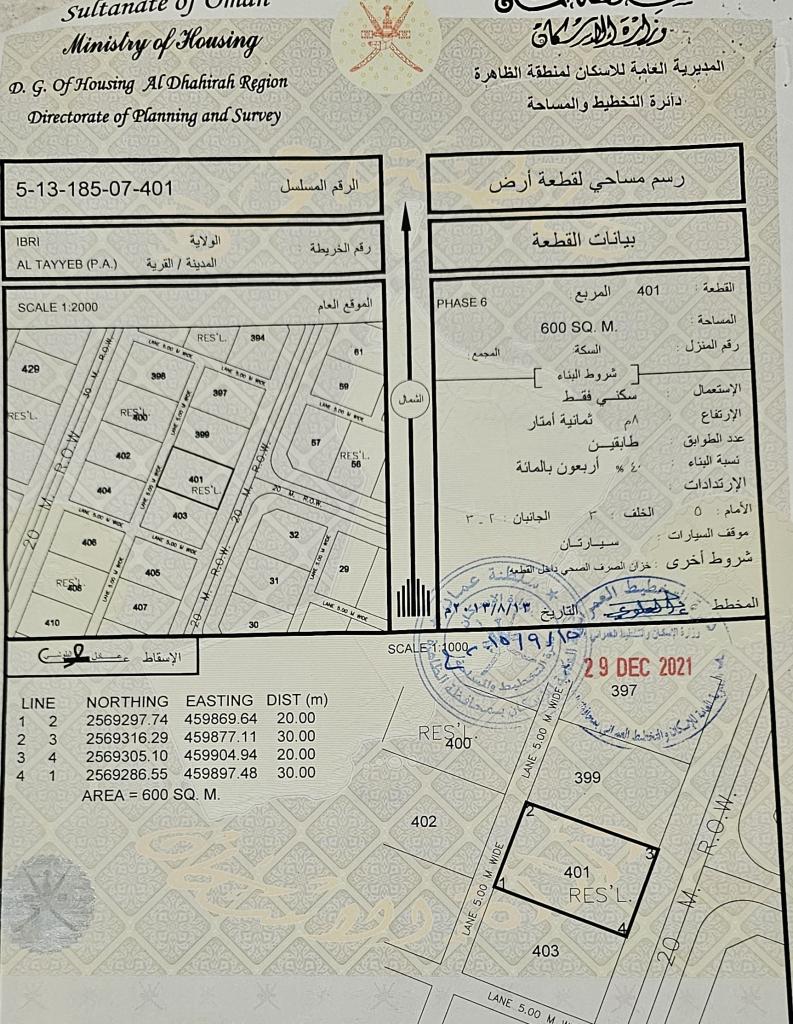 Sultanate of Oman
Ministry of Housing
D. G. Of Housing Al Dhahirah Region
Directorate of Planning and Survey
وزارة الإسكان
المديرية العامة للاسكان لمنطقة الظاهرة
دائرة التخطيط والمساحة
5-13-185-07-401 الرقم المسلسل
رسم مساحي لقطعة أرض
IBRI الولاية رقم الخريطة :
AL TAYYEB (P.A.) المدينة / القرية
بيانات القطعة
SCALE 1:2000 الموقع العام
القطعة : 401 المربع : PHASE 6
المساحة : 600 SQ. M.
رقم المنزل : السكة : المجمع :
شروط البناء
الإستعمال : سكني فقط
الإرتفاع : ٨م ثمانية أمتار
عدد الطوابق : طابقين
نسبة البناء : ٤٠ % أربعون بالمائة
الإرتدادات :
الأمام : ٥ الخلف : ٣ الجانبان : ٢ - ٣
موقف السيارات : سيارتان
شروط أخرى : خزان الصرف الصحي داخل القطعة
المخطط : التاريخ ٢٠١٣/٨/١٣م
الشمال
429
RES'L.
30 M. R.O.W.
LANE 5.00 M WIDE
RES'L. 394
398
397
RES'L.
400
399
402
401
RES'L.
404
403
LANE 5.00 M WIDE
LANE 5.00 M WIDE
LANE 5.00 M WIDE
20 M. R.O.W
406
405
RES'L.
408
407
410
LANE 5.00 M WIDE
LANE 5.00 M WIDE
20 M. R.O.W.
61
59
LANE 5.00 M WIDE
57
RES'L.
56
20 M. R.O.W.
32
31
29
30
LANE 5.00 M WIDE
LANE 5.00 M WIDE
الإسقاط
SCALE 1:1000
سلطنة عمان
29 DEC 2021
LINE NORTHING EASTING DIST (m)
1 2 2569297.74 459869.64 20.00
2 3 2569316.29 459877.11 30.00
3 4 2569305.10 459904.94 20.00
4 1 2569286.55 459897.48 30.00
AREA = 600 SQ. M.
397
RES'L.
400
399
402
LANE 5.00 M WIDE
LANE 5.00 M WIDE
2
3
1
4
401
RES'L.
403
20 M. R.O.W.
LANE 5.00 M WIDE